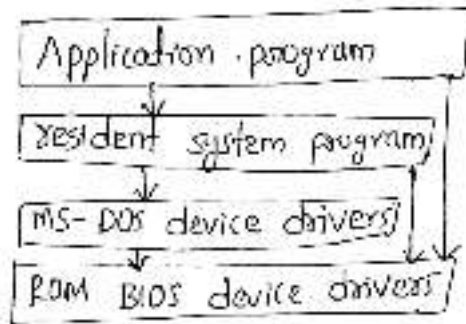 Application program
resident system program
MS-DOS device drivers
ROM BIOS device drivers